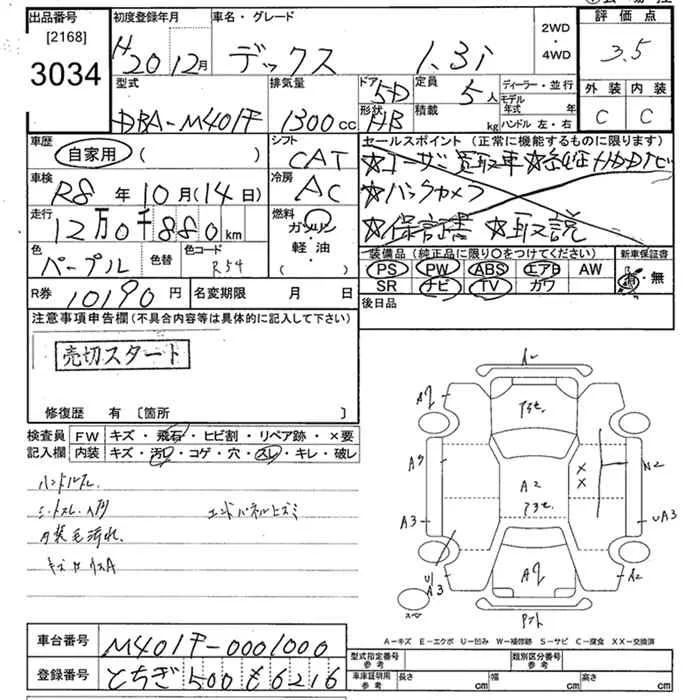 出品番号 初度登録年月 車名・グレード 2WD・4WD 評価点
[2168]
3034 H20 12月 デックス 1.3i 3.5
型式 排気量 ドア 5D 定員 5人 ディーラー・並行 外装 内装
DBA-M401F 1300cc 形状 HB 積載 kg モデル年式 年 C C
ハンドル 左・右
車歴 自家用 ( ) シフト CAT セールスポイント (正常に機能するものに限ります)
☆ユーザー買取車 ☆純正HDDナビ
車検 R8年10月(14日) 冷房 AC ☆バックカメラ
走行 12万0千880km 燃料 ガソリン ☆保証書 ☆取説
軽・油
( )
色 パープル 色替 色コード R54 装備品 (純正品に限り○をつけてください) 新車保証書
PS PW ABS エアB AW 有・無
SR ナビ TV カワ
R券 10190円 名変期限 月 日 後日品
注意事項申告欄 (不具合内容等は具体的に記入して下さい)
売切スタート
修復歴 有 [箇所 ]
検査員 FW キズ・飛石・ヒビ割・リペア跡・×要
記入欄 内装 キズ・汚レ・コゲ・穴・スレ・キレ・破レ
ハンドルスレ
シートスレ
エンドパネルヒズミ
A2
A2
A3
A3
UA3
A2
A2
A-キズ E-エクボ U-凹み W-補修跡 S-サビ C-腐食 XX-交換済
車台番号 M401F-0001000 型式指定番号 参考 類別区分番号 参考
登録番号 とちぎ 500 も 6216 車庫証明用 参考 長さ cm 幅 cm 高さ cm